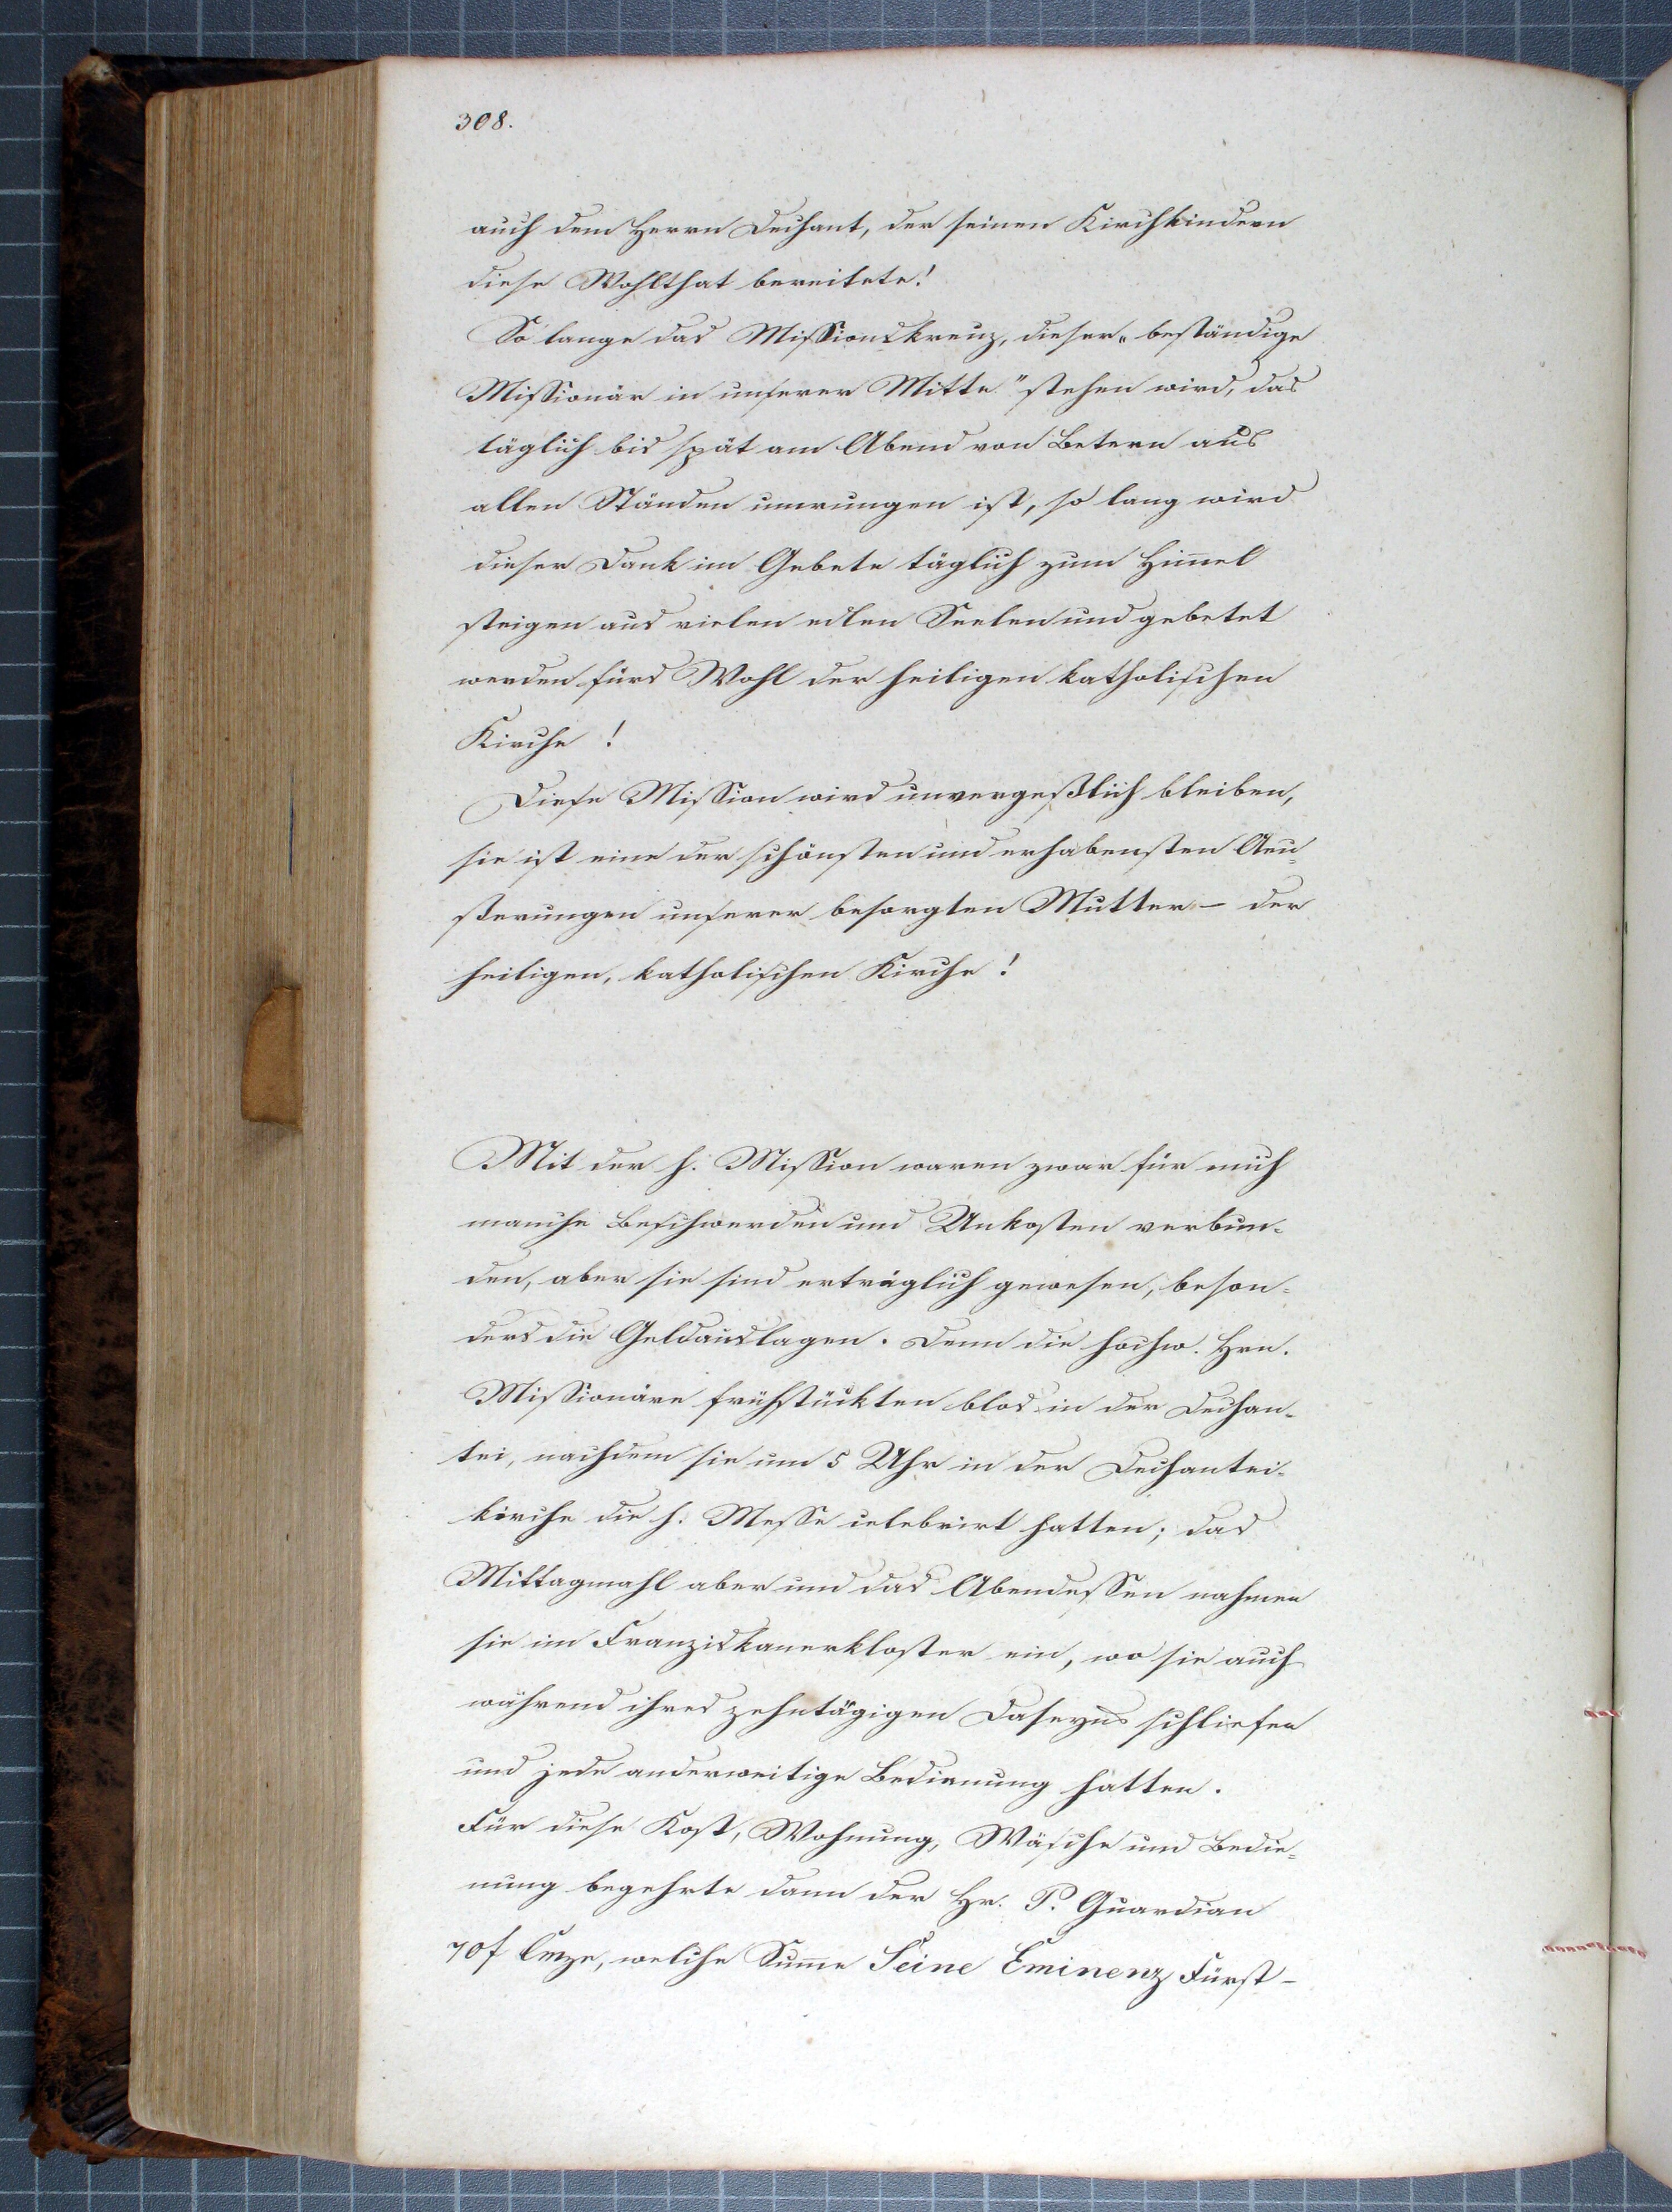 308.
auch dem Herrn Dechant, der seinen Kirchkindern
diese Wohlthat bereitete!
So lange das Missionskreuz, dieser „beständige
Missionär in unserer Mitte" stehen wird, das
täglich bis spät am Abend von Betern aus
allen Ständen umrungen ist, so lang wird
dieser Dank im Gebete täglich zum Him̄el
steigen aus vielen edlen Seelen und gebetet
werden fürs Wohl der heiligen katholischen
Kirche !
Diese Mission wird unvergeßlich bleiben,
sie ist eine der schönsten und erhabensten Aeu-
ßerungen unserer besorgten Mutter – der
heiligen, katholischen Kirche !
Mit der h. Mission waren zwar für mich
manche Beschwerden und Unkosten verbun-
den, aber sie sind erträglich gewesen, beson-
ders die Geldauslagen. Denn die hochw. Hrn.
Missionäre frühstückten blos in der Dechan-
tei, nachdem sie um 5 Uhr in der Dechantei-
kirche die h. Messe celebrirt hatten; das
Mittagmahl aber und das Abendessen nahmen
sie im Franziskanerkloster ein, wo sie auch
während ihres zehntägigen Daseyns schliefen
und jede anderweitige Bedienung hatten.
Für diese Kost, Wohnung, Wäsche und Bedie-
nung begehrte dann der Hr. P. Guardian
70f Cmze, welche Sum̄e Seine Eminenz Fürst-